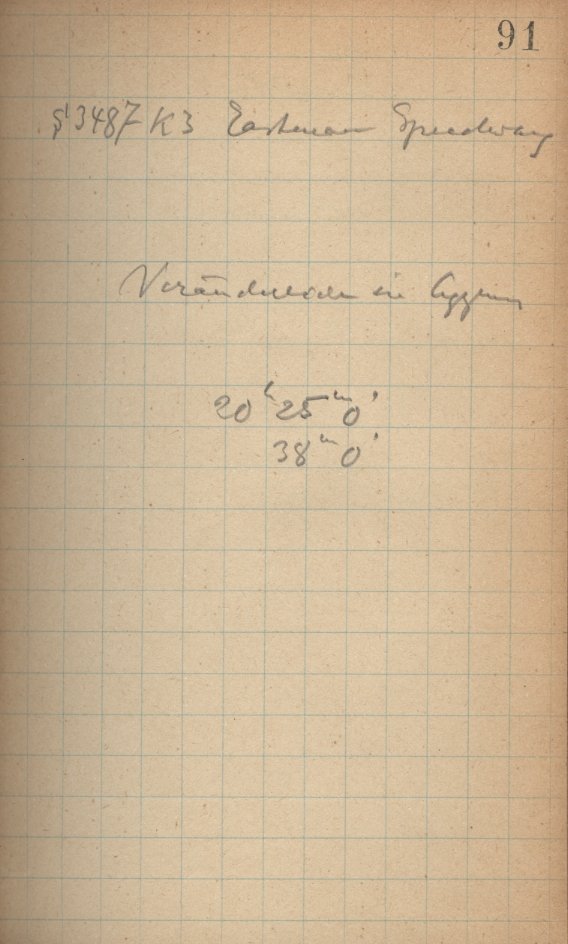 91
S 3487 K3 Eastman Speedway
Veränderlichen in Cygnus
20ʰ 25ᵐ 0ˢ
38ᵐ 0ˢ